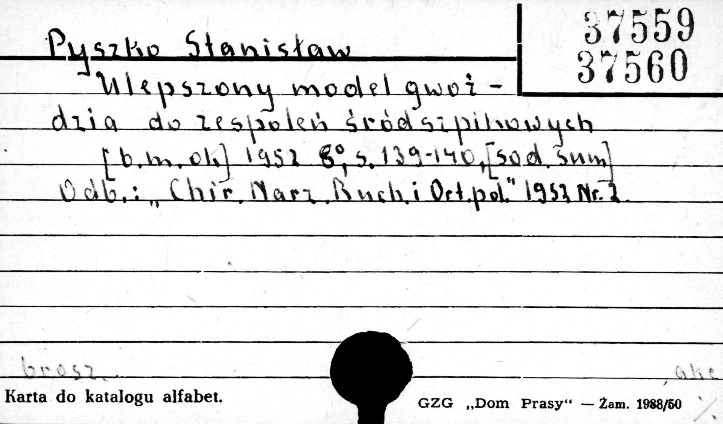 37559
37560
Pyszko Stanisław
Ulepszony model gwoź-
dzia do zespoleń śródszpikowych
[b.m.ok] 1952 8°, s. 139-140, [sod. sum]
Odb.: „Chir. Narz. Ruch. i Ort. pol." 1952 Nr. 2.
brosz.
akc
Karta do katalogu alfabet.
GZG „Dom Prasy“ — Żam. 1988/50